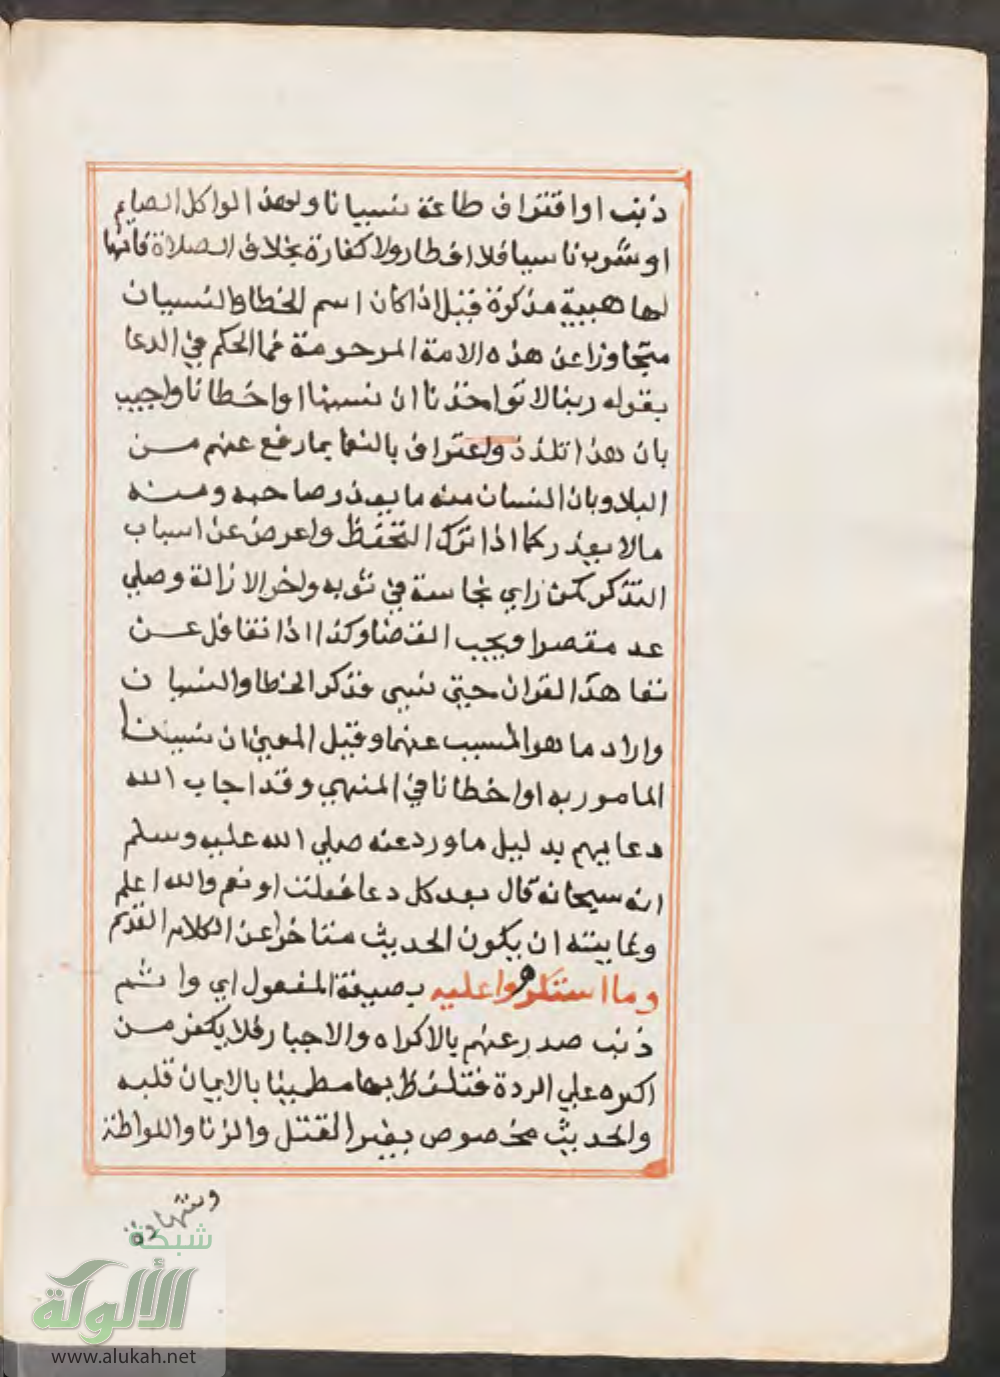 ذنب او اقتراف طاعة نسيانا ولهذا لو اكل الصايم
او شرب ناسيا فلا افطار ولا كفارة بخلاف الصلاة فانها
لها هيية مذكرة فقيل اذا كان اسم الخطا والنسيان
متجاوزا عن هذه الامة المرحومة فما الحكم في الدعا
بقوله ربنا لا تواخذنا ان نسينا او اخطانا واجيب
بان هذا تلذذ واعتراف بالنعما بما رفع عنهم من
البلا وبان النسان منه ما يعذر صاحبه ومنه
ما لا يعذر كما اذا ترك التحفظ واعرض عن اسباب
التذكر كمن راي نجاسة في ثوبه واخر الازالة وصلي
عد مقصرا ويجب القضا وكذا اذا تغافل عن
تعاهد القران حتي نسي فذكر الخطا والنسيان
واراد ما هو المسبب عنهما وقيل المعني ان نسينا
المامور به او اخطانا في المنهي وقد اجاب الله
دعايهم بدليل ما ورد عنه صلي الله عليه وسلم
انه سبحانه قال بعد كل دعا فعلت او نعم والله اعلم
وغايته ان يكون الحديث متاخرا عن الكلام القديم
وما استكرهوا عليه بصيغة المفعول اي واثم
ذنب صدر عنهم بالاكراه والاجبار فلا يكفر من
اكره علي الردة فتلفظ بها مطمينا بالايمان قلبه
والحديث مخصوص بغير القتل والزنا واللواطة
وشهادة
شبكة
الألوكة
www.alukah.net